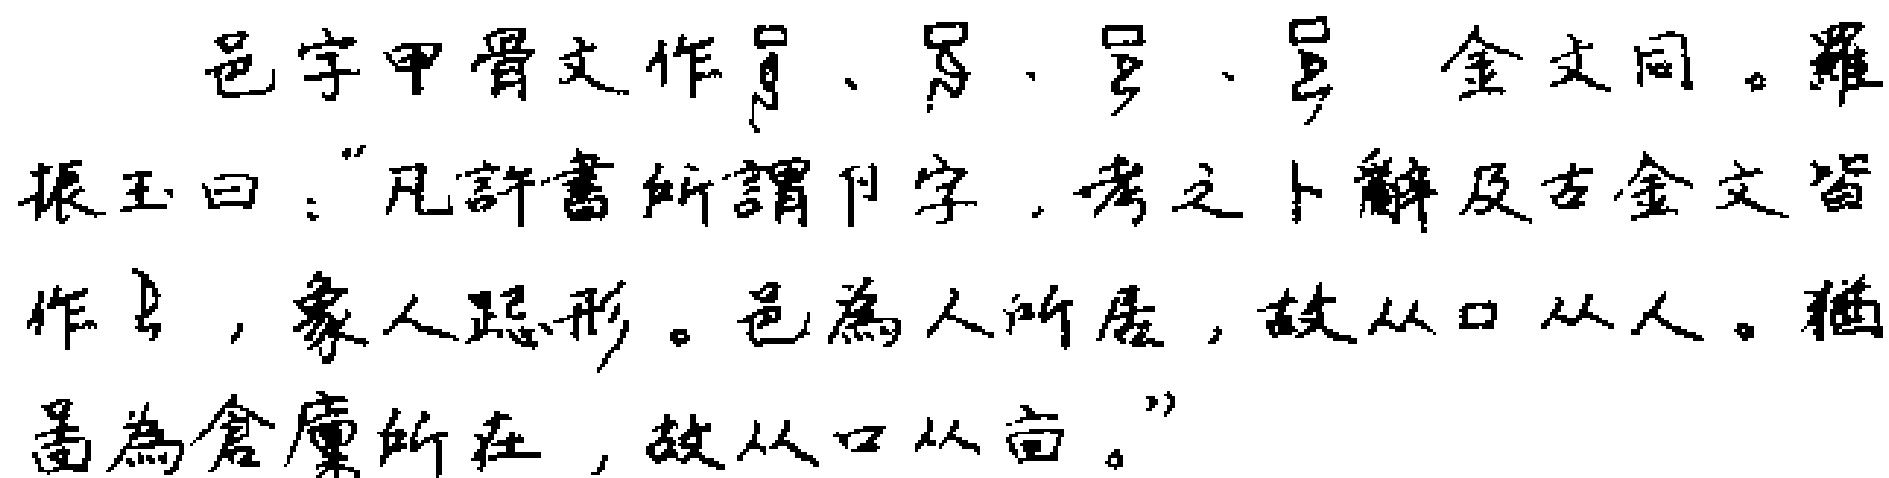 邑字甲骨文作、、、 金文同。羅
振玉曰：“凡許書所謂卪字，考之卜辭及古金文皆
作，象人跽形。邑為人所居，故从囗从人。猶
啚為倉廩所在，故从囗从㐭。”